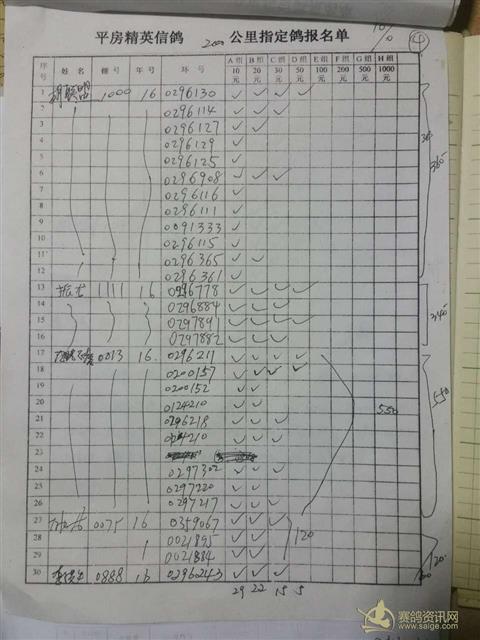 平房精英信鸽 200 公里指定鸽报名单 ④
序号 姓名 棚号 年号 环号 A组10元 B组20元 C组30元 D组50元 E组100元 F组200元 G组500元 H组1000元
1 1000 16 0296130 ✓ ✓ ✓ ✓
2 0296114 ✓ ✓ ✓
3 0296127 ✓ ✓
4 0296129 ✓
5 0296125 ✓
6 0296908 ✓ ✓ ✓
7 0296116 ✓
8 0296111 ✓
9 0091333 ✓
10 0296115 ✓
11 0296365 ✓ ✓
12 0296361 ✓
13 1111 16 0296778 ✓ ✓ ✓ ✓
14 0296884 ✓ ✓ ✓
15 0297891 ✓ ✓ ✓ ✓
16 0297882 ✓ ✓ ✓
17 0013 16 0296211 ✓ ✓ ✓ ✓
18 0200157 ✓ ✓ ✓ ✓
19 0200152 ✓ ✓
20 0124210 ✓ ✓ ✓ 550 550
21 0296218 ✓ ✓ ✓
22 ✓ ✓ ✓
23
24 0297302 ✓ ✓ ✓
25 0297220 ✓ ✓
26 0297217 ✓ ✓ ✓
27 0075 16 0359067 ✓ ✓ ✓
28 0021895 ✓ ✓ 120
29 0021884 ✓ ✓ 120
30 0888 16 0296243 ✓ ✓ ✓
29 22 15 5
赛鸽资讯网
www.saige.com